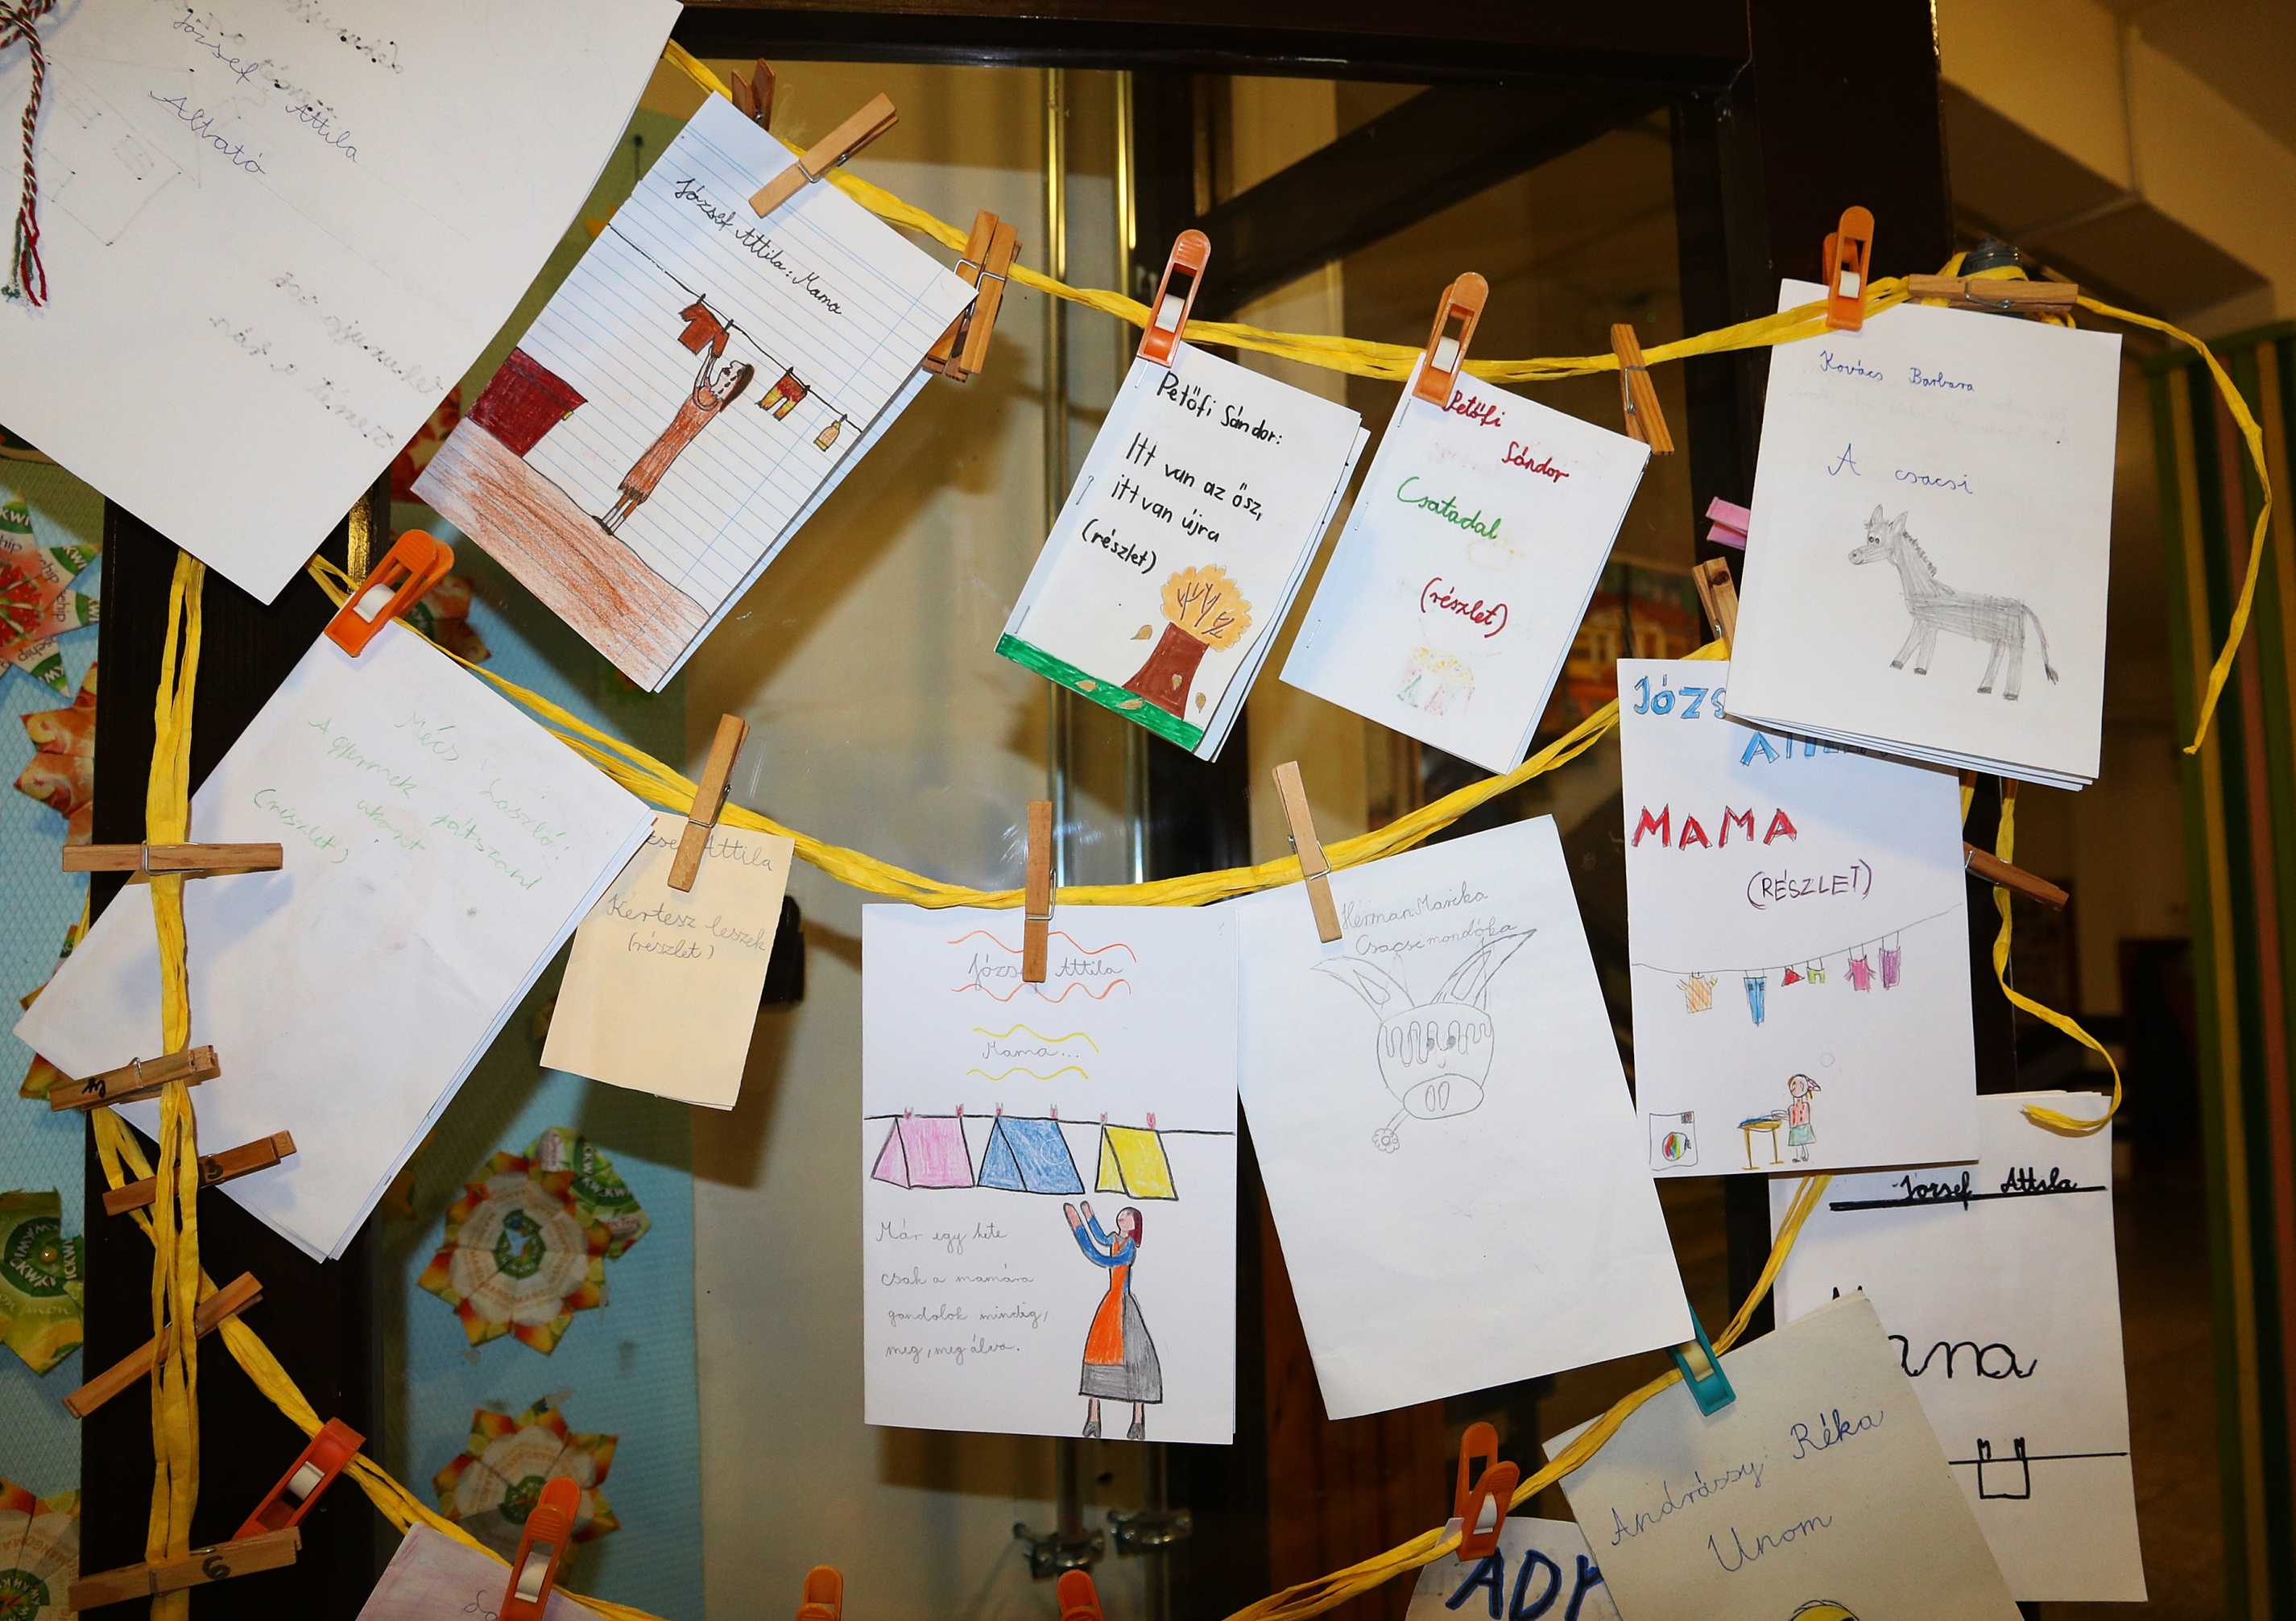 József Attila
Altató
József Attila: Mama
Petőfi Sándor:
Itt van az ősz,
itt van újra
(részlet)
Petőfi
Sándor
Csatadal
(részlet)
Kovács Barbara
A csacsi
Mécs László:
A gyermek játszani
akart
(részlet)
Attila
Kertesz leszek
(részlet)
Attila
Mama...
Már egy hete
csak a mamára
gondolok mindig,
meg, meg álva.
Herman Marika
Csacsi mondóka
JÓZS
MAMA
(RÉSZLET)
József Attila
Andrássy Réka
Unom
ADY